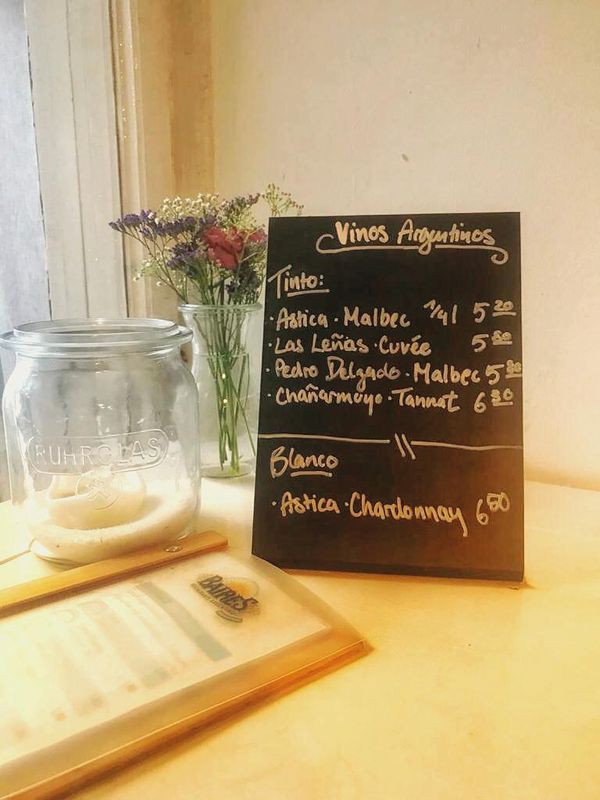 Vinos Argentinos
Tinto:
· Astica · Malbec 1/4l 5 20
· Las Leñas · Cuvée 5 50
· Pedro Delgado · Malbec 5 80
· Chañarmuyo · Tannat 6 80
Blanco
· Astica · Chardonnay 6 00
RUHRGLAS
BAIRES